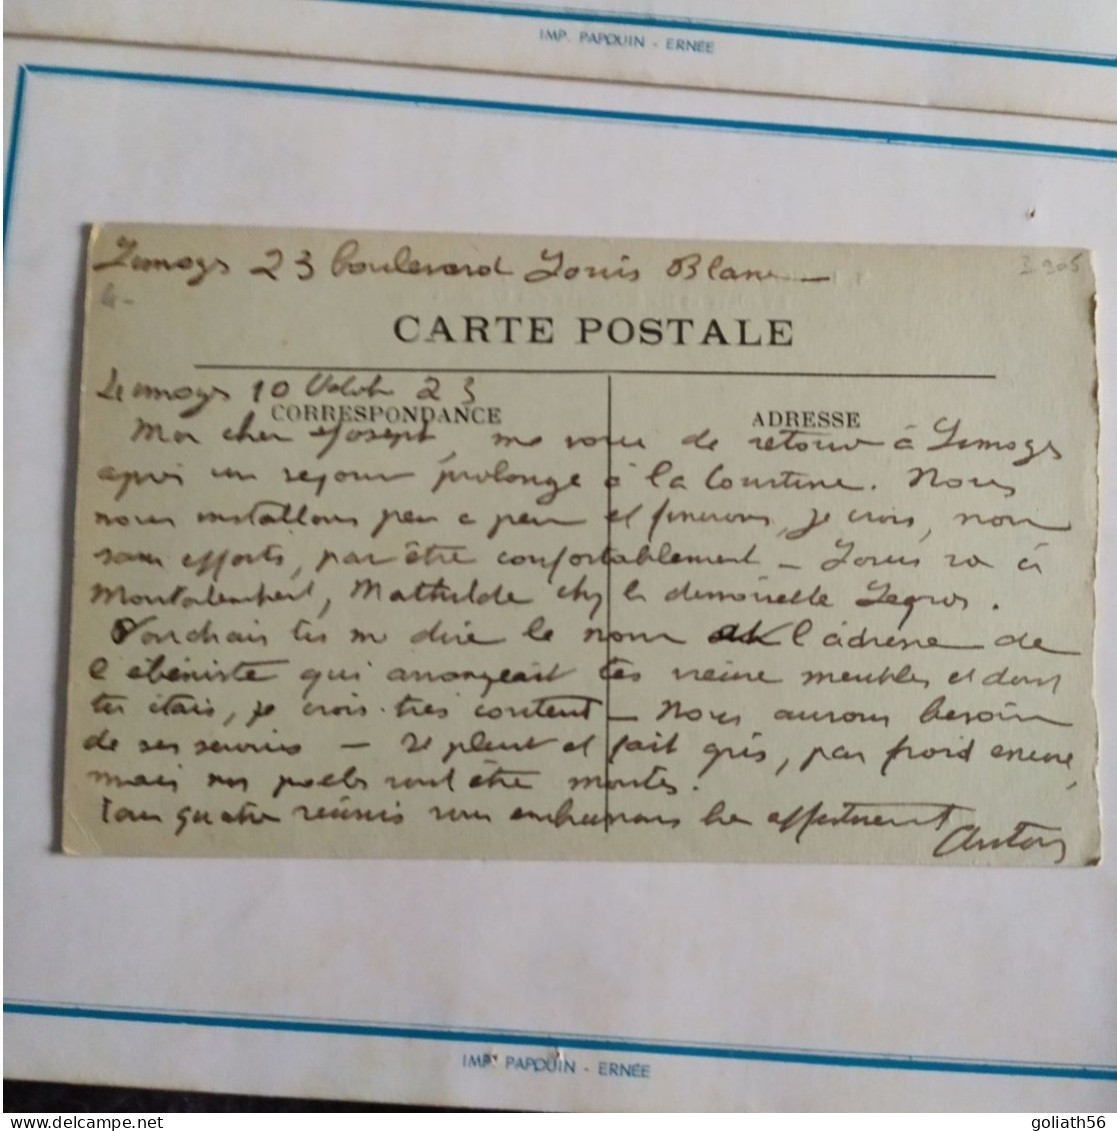 IMP. PAPOUIN - ERNÉE
Limoges 23 boulevard Louis Blanc
CARTE POSTALE
Limoges 10 Octob 23
CORRESPONDANCE
ADRESSE
Mon cher Joseph, me voici de retour à Limoges
après un séjour prolongé à la Courtine. Nous
nous installons peu à peu et finirons, je crois, non
sans efforts, par être confortablement - Louis va à
Montalembert, Mathilde chez la demoiselle Legros.
Voudrais tu me dire le nom l'adresse de
l'ébéniste qui arrangeait tes vieux meubles et dont
tu étais, je crois très content - Nous aurons besoin
de ses services - Il pleut et fait gris, pas froid encore,
mais nos poêles vont être montés.
Tous quatre réunis vous embrassons bien affectueusement
IMP. PAPOUIN - ERNÉE
goliath56